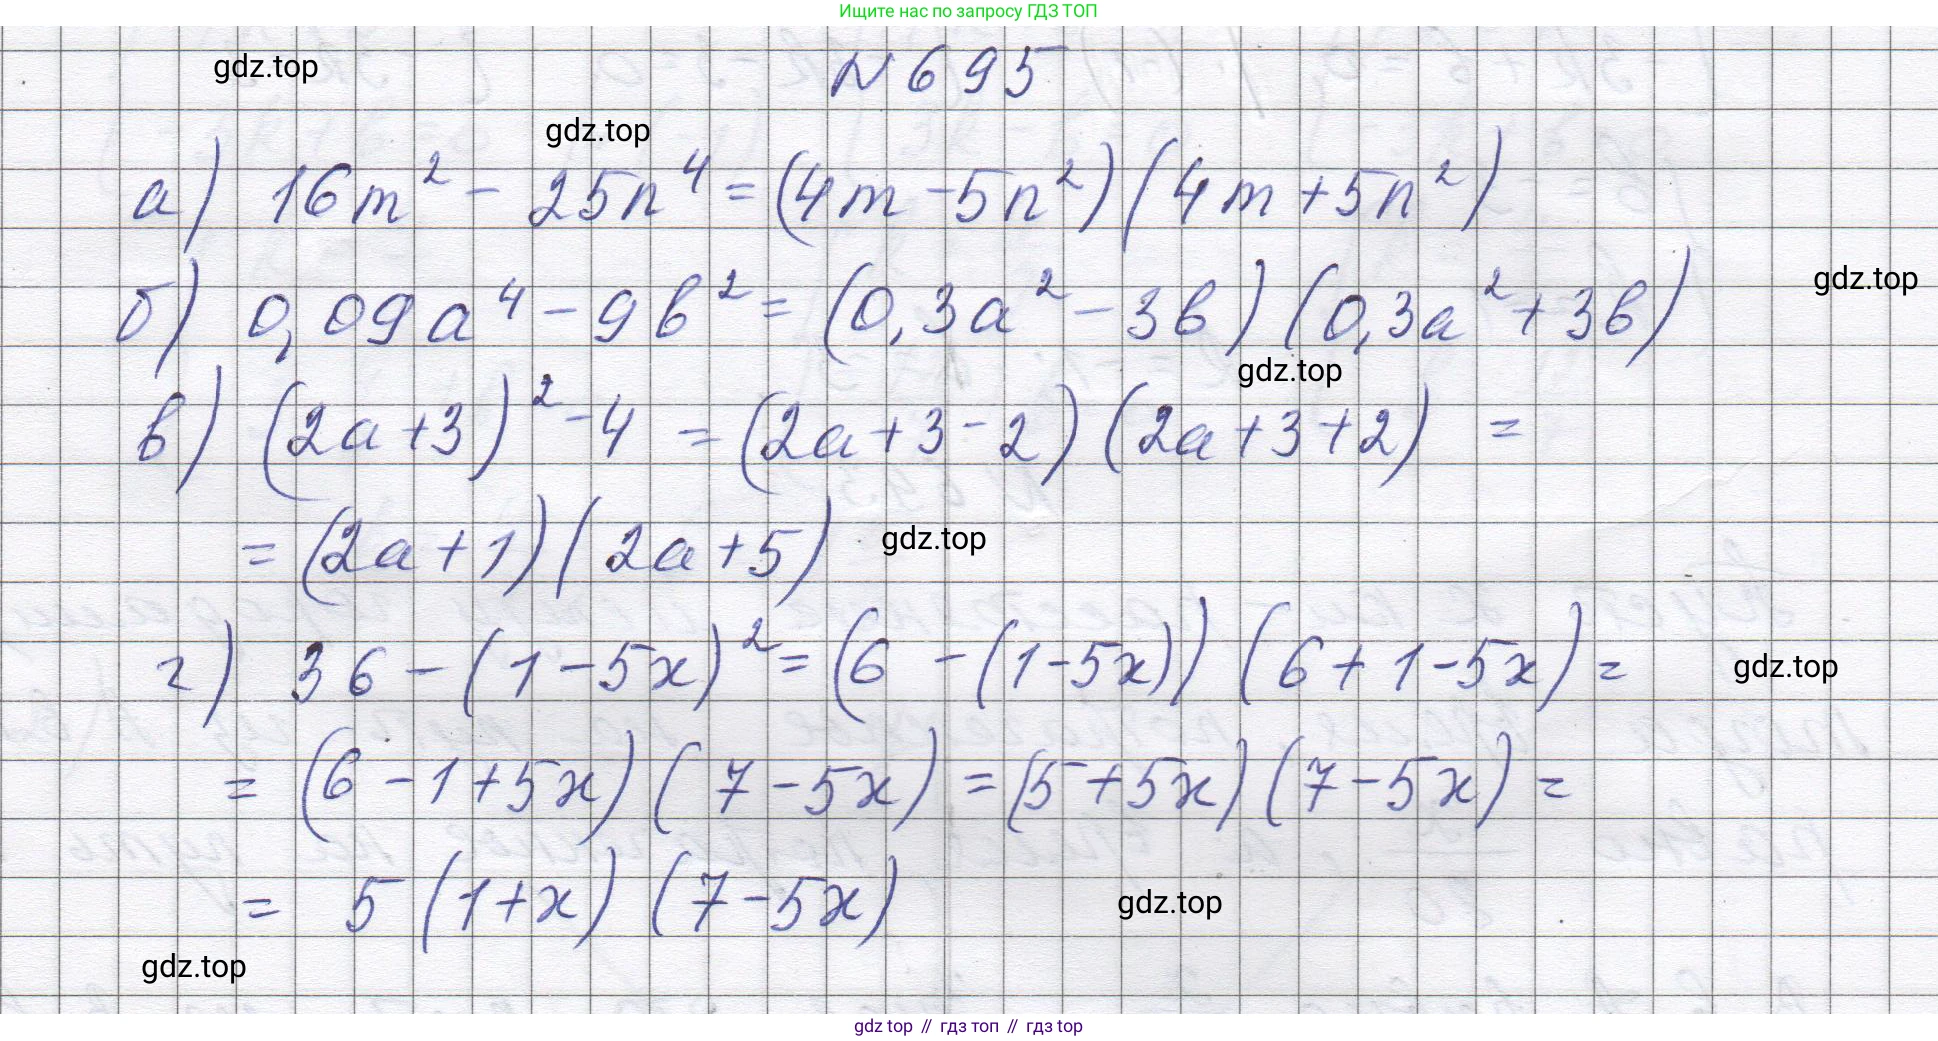 Ищите нас по запросу ГДЗ ТОП
№ 695
gdz.top
gdz.top
а) 16m² - 25n⁴ = (4m - 5n²)(4m + 5n²)
б) 0,09a⁴ - 9b² = (0,3a² - 3b)(0,3a² + 3b)
gdz.top
gdz.top
в) (2a+3)² - 4 = (2a+3-2)(2a+3+2) =
= (2a+1)(2a+5)
gdz.top
г) 36 - (1-5x)² = (6 - (1-5x))(6+1-5x) =
gdz.top
= (6-1+5x)(7-5x) = (5+5x)(7-5x) =
= 5(1+x)(7-5x)
gdz.top
gdz.top
gdz top // гдз топ // гдз top